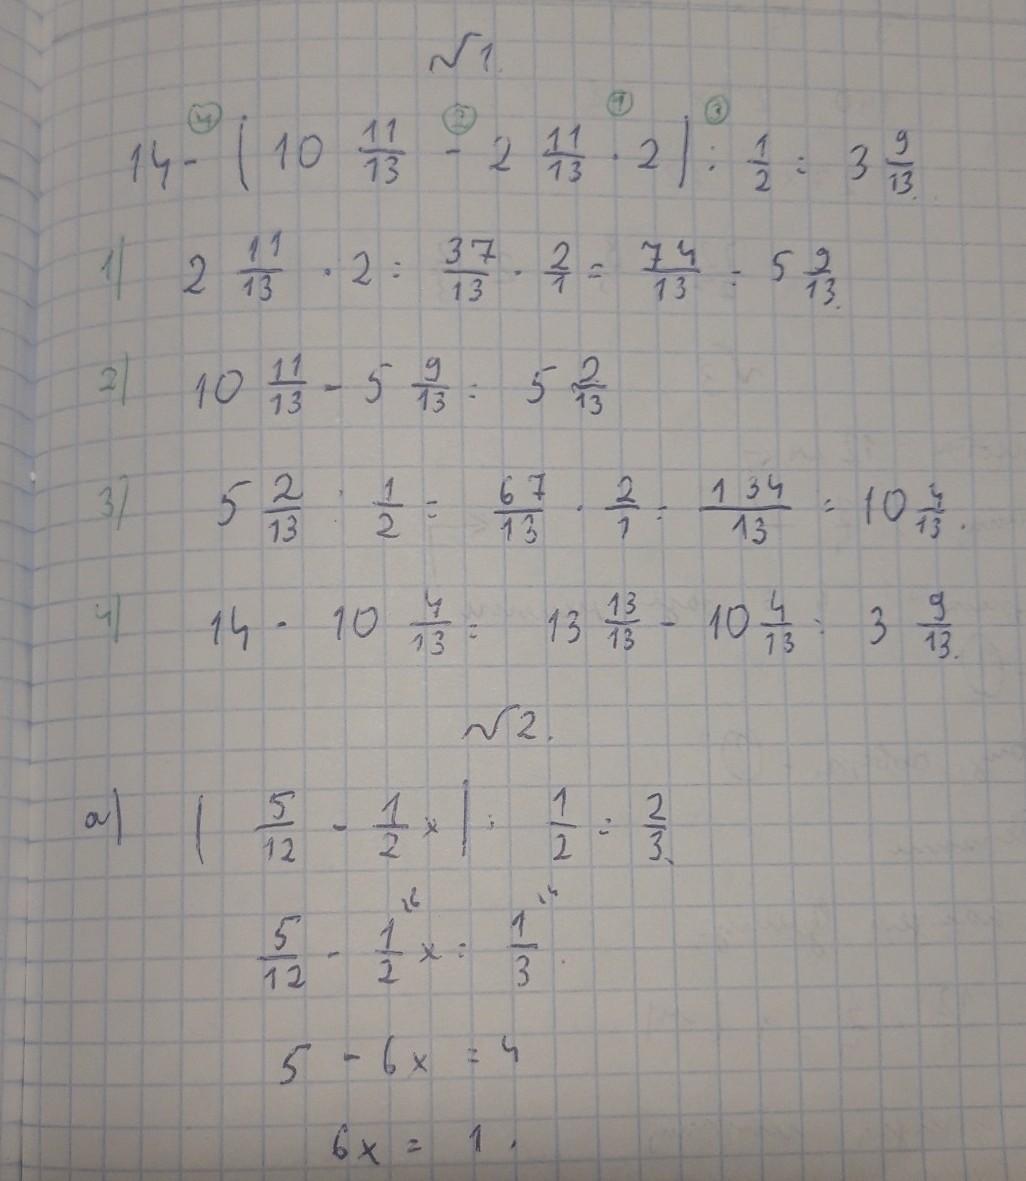 №1.
14 - (10 11/13 - 2 11/13 · 2) : 1/2 = 3 9/13.
④ ② ① ③
1) 2 11/13 · 2 = 37/13 · 2/1 = 74/13 = 5 9/13.
2) 10 11/13 - 5 9/13 = 5 2/13
3) 5 2/13 : 1/2 = 67/13 · 2/1 = 134/13 = 10 4/13.
4) 14 - 10 4/13 = 13 13/13 - 10 4/13 = 3 9/13.
№2.
a) (5/12 - 1/2 x) : 1/2 = 2/3.
5/12 - 1/2 \6 x = 1/3 \4.
5 - 6x = 4
6x = 1.